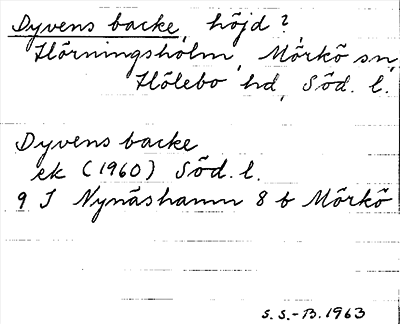 Dyvens backe, höjd?
Hörningsholm, Mörkö sn,
Hölebo hd, Söd. l.
Dyvens backe
ek (1960) Söd. l.
9 I Nynäshamn 8 b Mörkö
S.S.-B. 1963